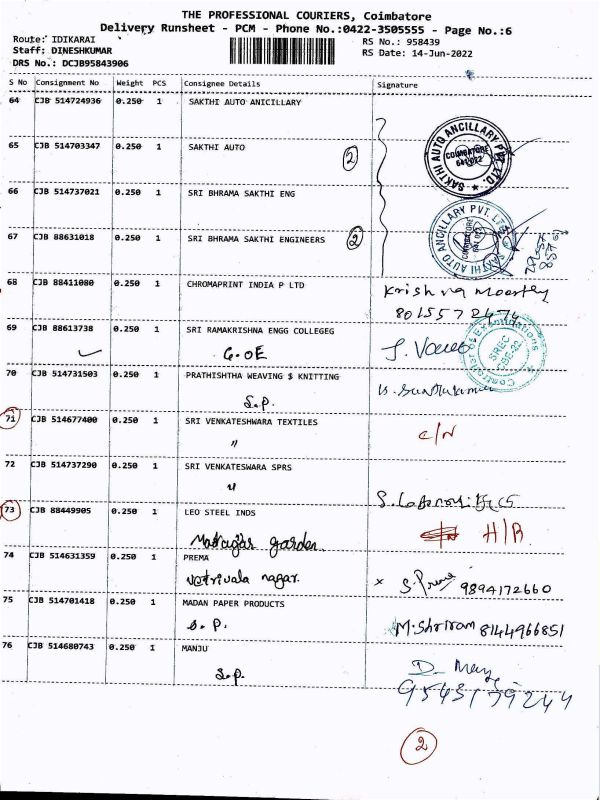 THE PROFESSIONAL COURIERS, Coimbatore
Delivery Runsheet - PCM - Phone No.:0422-3505555 - Page No.:6
Route: IDIKARAI
RS No.: 958439
Staff: DINESHKUMAR
RS Date: 14-Jun-2022
DRS No.: DCJB95843906
S No Consignment No Weight PCS Consignee Details Signature
64 CJB 514724936 0.250 1 SAKTHI AUTO ANICILLARY
65 CJB 514703347 0.250 1 SAKTHI AUTO 2
SAKTHI AUTO ANCILLARY PVT. LTD.
COIMBATORE
641 022
66 CJB 514737021 0.250 1 SRI BHRAMA SAKTHI ENG
67 CJB 88631018 0.250 1 SRI BHRAMA SAKTHI ENGINEERS 2
SAKTHI AUTO ANCILLARY PVT. LTD.
COIMBATORE
641 022
68 CJB 88411080 0.250 1 CHROMAPRINT INDIA P LTD Krishna Moorthy
8015572474
69 CJB 88613738 0.250 1 SRI RAMAKRISHNA ENGG COLLEGEG
C.OE
Controller of Examinations
SREC
CBE-22
70 CJB 514731503 0.250 1 PRATHISHTHA WEAVING $ KNITTING
S.P.
71 CJB 514677400 0.250 1 SRI VENKATESHWARA TEXTILES C/N
"
72 CJB 514737290 0.250 1 SRI VENKATESWARA SPRS
"
73 CJB 88449905 0.250 1 LEO STEEL INDS H/R
garden
74 CJB 514631359 0.250 1 PREMA
Vetrivala nagar. x S. Prema 9894172660
75 CJB 514701418 0.250 1 MADAN PAPER PRODUCTS
S.P. M.Shriram 8144966851
76 CJB 514680743 0.250 1 MANJU
S.P. 9543179244
2